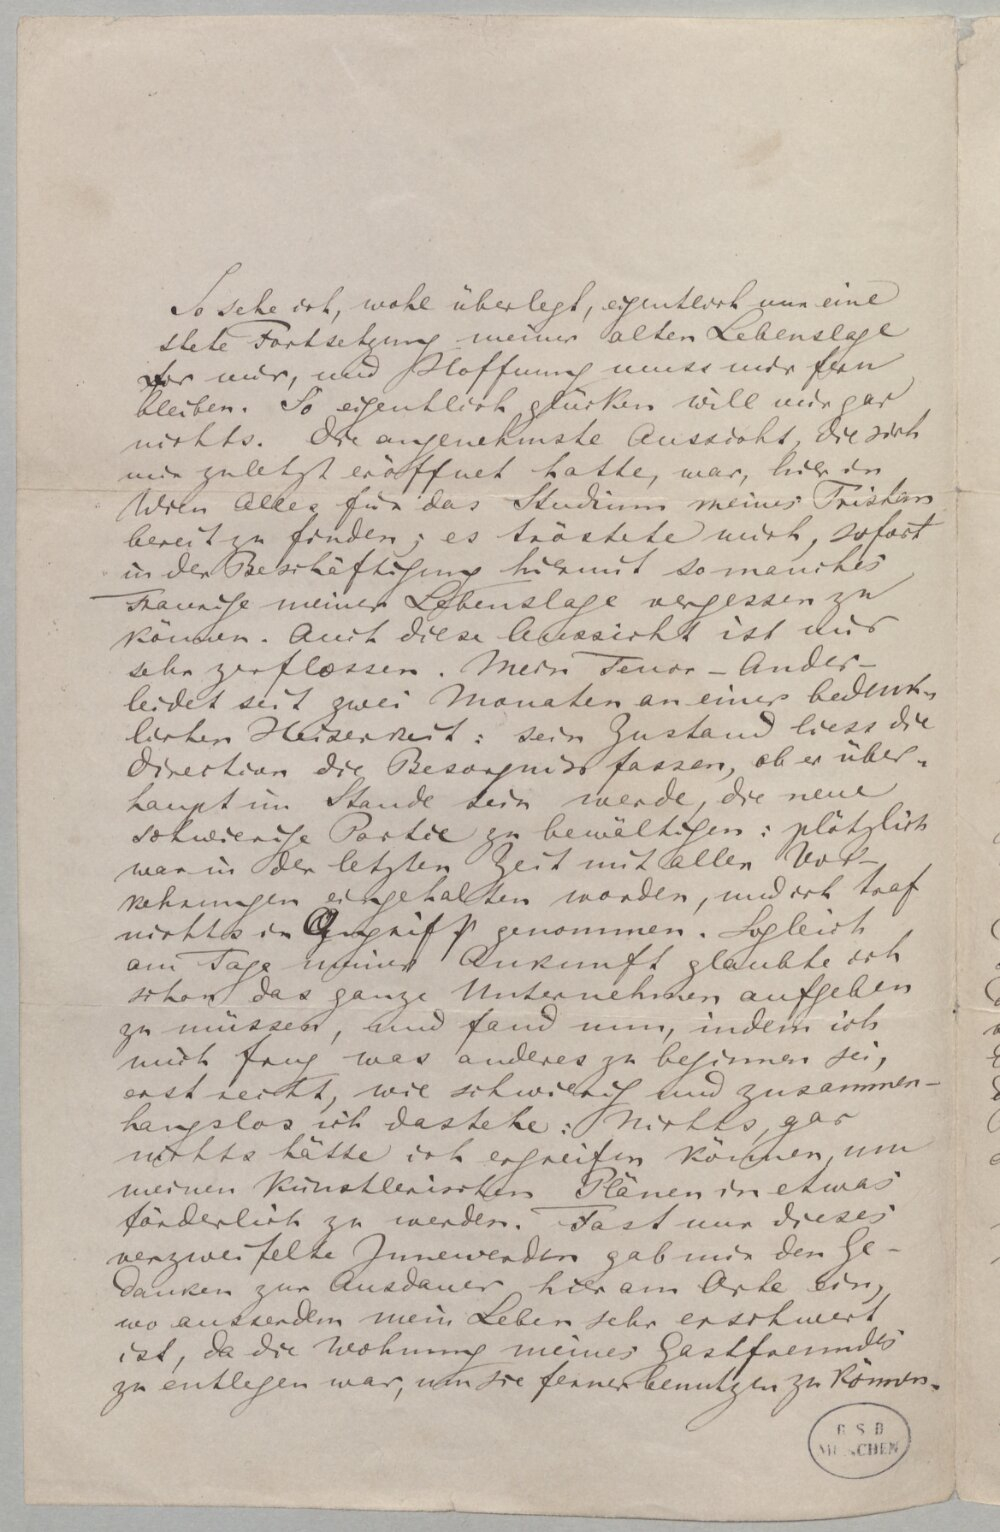 So sehe ich, wohl überlegt, eigentlich nur eine
stete Fortsetzung meiner alten Lebenslage
vor mir, und Hoffnung muss mir fern
bleiben. So eigentlich glücken will mir gar
nichts. Die angenehmste Aussicht, die sich
mir zuletzt eröffnet hatte, war, hier in
Wien Alles für das Studium meines Tristan
bereit zu finden; es tröstete mich, sofort
in der Beschäftigung hiermit so manches
Traurige meiner Lebenslage vergessen zu
können. Auch diese Aussicht ist mir
sehr zerflossen. Mein Tenor – Ander –
leidet seit zwei Monaten an einer bedenk-
lichen Heiserkeit: sein Zustand liess die
Direction die Besorgniss fassen, ob er über-
haupt im Stande sein werde, die neue
schwierige Partie zu bewältigen: plötzlich
war in der letzten Zeit mit allen Vor-
kehrungen eingehalten worden, und ich traf
nichts in Angriff genommen. Sogleich
am Tage meiner Ankunft glaubte ich
schon das ganze Unternehmen aufgeben
zu müssen, und fand nun, indem ich
mich frug was anderes zu beginnen sei,
erst recht, wie schwierig und zusammen-
hangslos ich dastehe: Nichts, gar
nichts hätte ich ergreifen können, um
meinen künstlerischen Plänen in etwas
förderlich zu werden. Fast nur dieses
verzweifelte Innewerden gab mir den Ge-
danken zur Ausdauer hier am Orte ein,
wo ausserdem mein Leben sehr erschwert
ist, da die Wohnung meines Gastfreundes
zu entlegen war, um sie ferner benutzen zu können.
B S B
MÜNCHEN